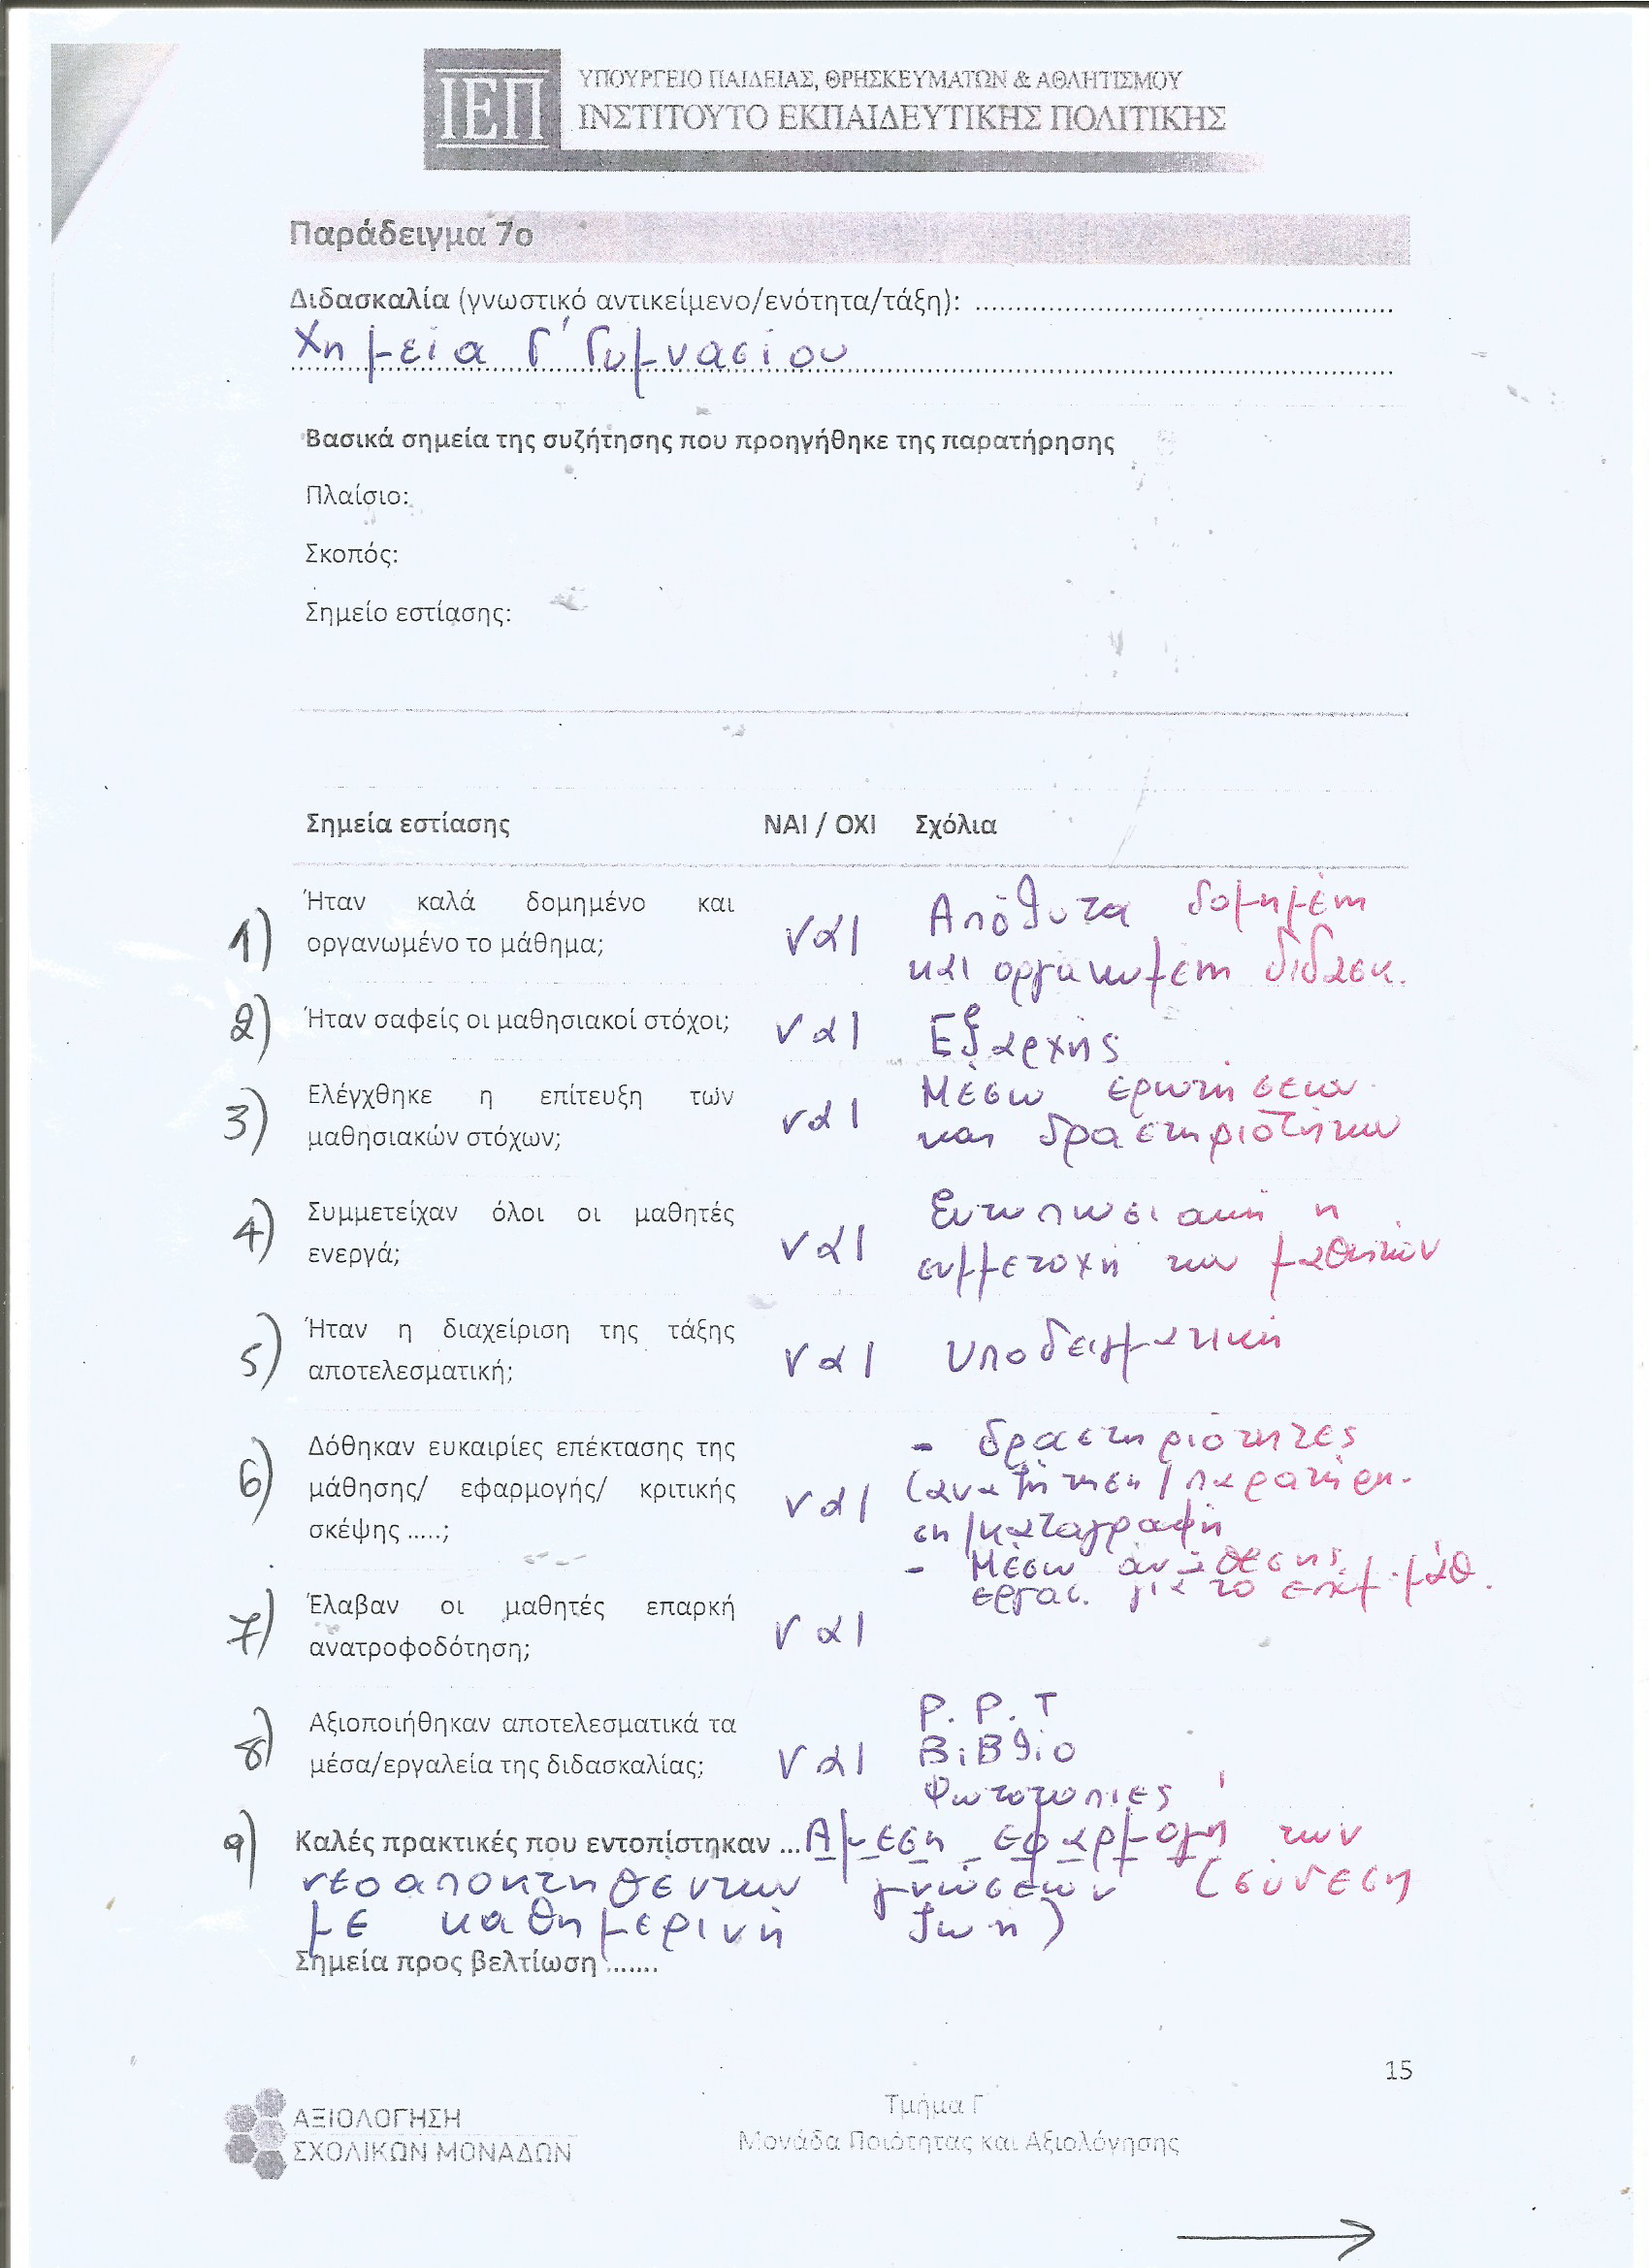 ΙΕΠ
ΥΠΟΥΡΓΕΙΟ ΠΑΙΔΕΙΑΣ, ΘΡΗΣΚΕΥΜΑΤΩΝ & ΑΘΛΗΤΙΣΜΟΥ
ΙΝΣΤΙΤΟΥΤΟ ΕΚΠΑΙΔΕΥΤΙΚΗΣ ΠΟΛΙΤΙΚΗΣ
Παράδειγμα 7ο
Διδασκαλία (γνωστικό αντικείμενο/ενότητα/τάξη): ..................................................
Χημεία Γ΄ Γυμνασίου
Βασικά σημεία της συζήτησης που προηγήθηκε της παρατήρησης
Πλαίσιο:
Σκοπός:
Σημείο εστίασης:
Σημεία εστίασης ΝΑΙ / ΟΧΙ Σχόλια
1) Ήταν καλά δομημένο και
οργανωμένο το μάθημα;
ναι
Απόλυτα δομημένη
και οργανωμένη διδασκ.
2) Ήταν σαφείς οι μαθησιακοί στόχοι; ναι Εξαρχής
3) Ελέγχθηκε η επίτευξη των
μαθησιακών στόχων;
ναι
Μέσω ερωτήσεων
και δραστηριοτήτων
4) Συμμετείχαν όλοι οι μαθητές
ενεργά;
ναι
Εντυπωσιακή η
συμμετοχή των μαθητών
5) Ήταν η διαχείριση της τάξης
αποτελεσματική;
ναι
Υποδειγματική
6) Δόθηκαν ευκαιρίες επέκτασης της
μάθησης/ εφαρμογής/ κριτικής
σκέψης .....;
ναι
- δραστηριότητες
(αναζήτηση/παρατήρη-
ση/καταγραφή
- Μέσω ανάθεσης
εργασ. για το επόμ. μάθ.
7) Έλαβαν οι μαθητές επαρκή
ανατροφοδότηση;
ναι
8) Αξιοποιήθηκαν αποτελεσματικά τα
μέσα/εργαλεία της διδασκαλίας;
ναι
P.P.T
Βιβλίο
Φωτοτυπίες
9) Καλές πρακτικές που εντοπίστηκαν ... Άμεση εφαρμογή των
νεοαποκτηθέντων γνώσεων (σύνδεση
με καθημερινή ζωή)
Σημεία προς βελτίωση .......
15
ΑΞΙΟΛΟΓΗΣΗ
ΣΧΟΛΙΚΩΝ ΜΟΝΑΔΩΝ
Τμήμα Γ
Μονάδα Ποιότητας και Αξιολόγησης